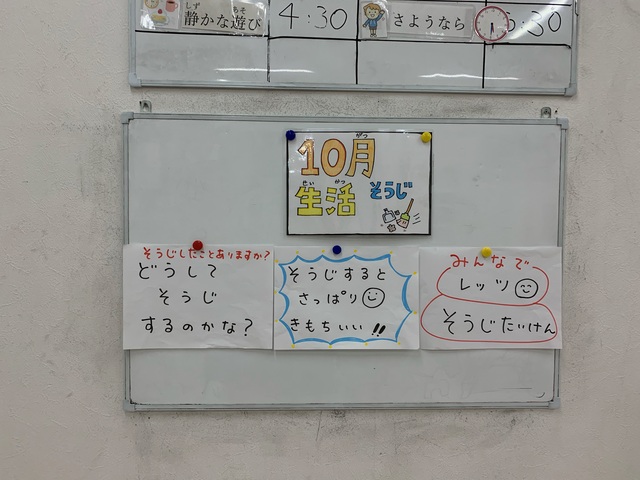 しず あそ
静かな遊び
4:30
さようなら
5:30
がつ
10月
せい かつ
生活 そうじ
そうじしたことありますか?
どうして
そうじ
するのかな?
そうじすると
さっぱり
きもちいい!!
みんなで
レッツ
そうじたいけん